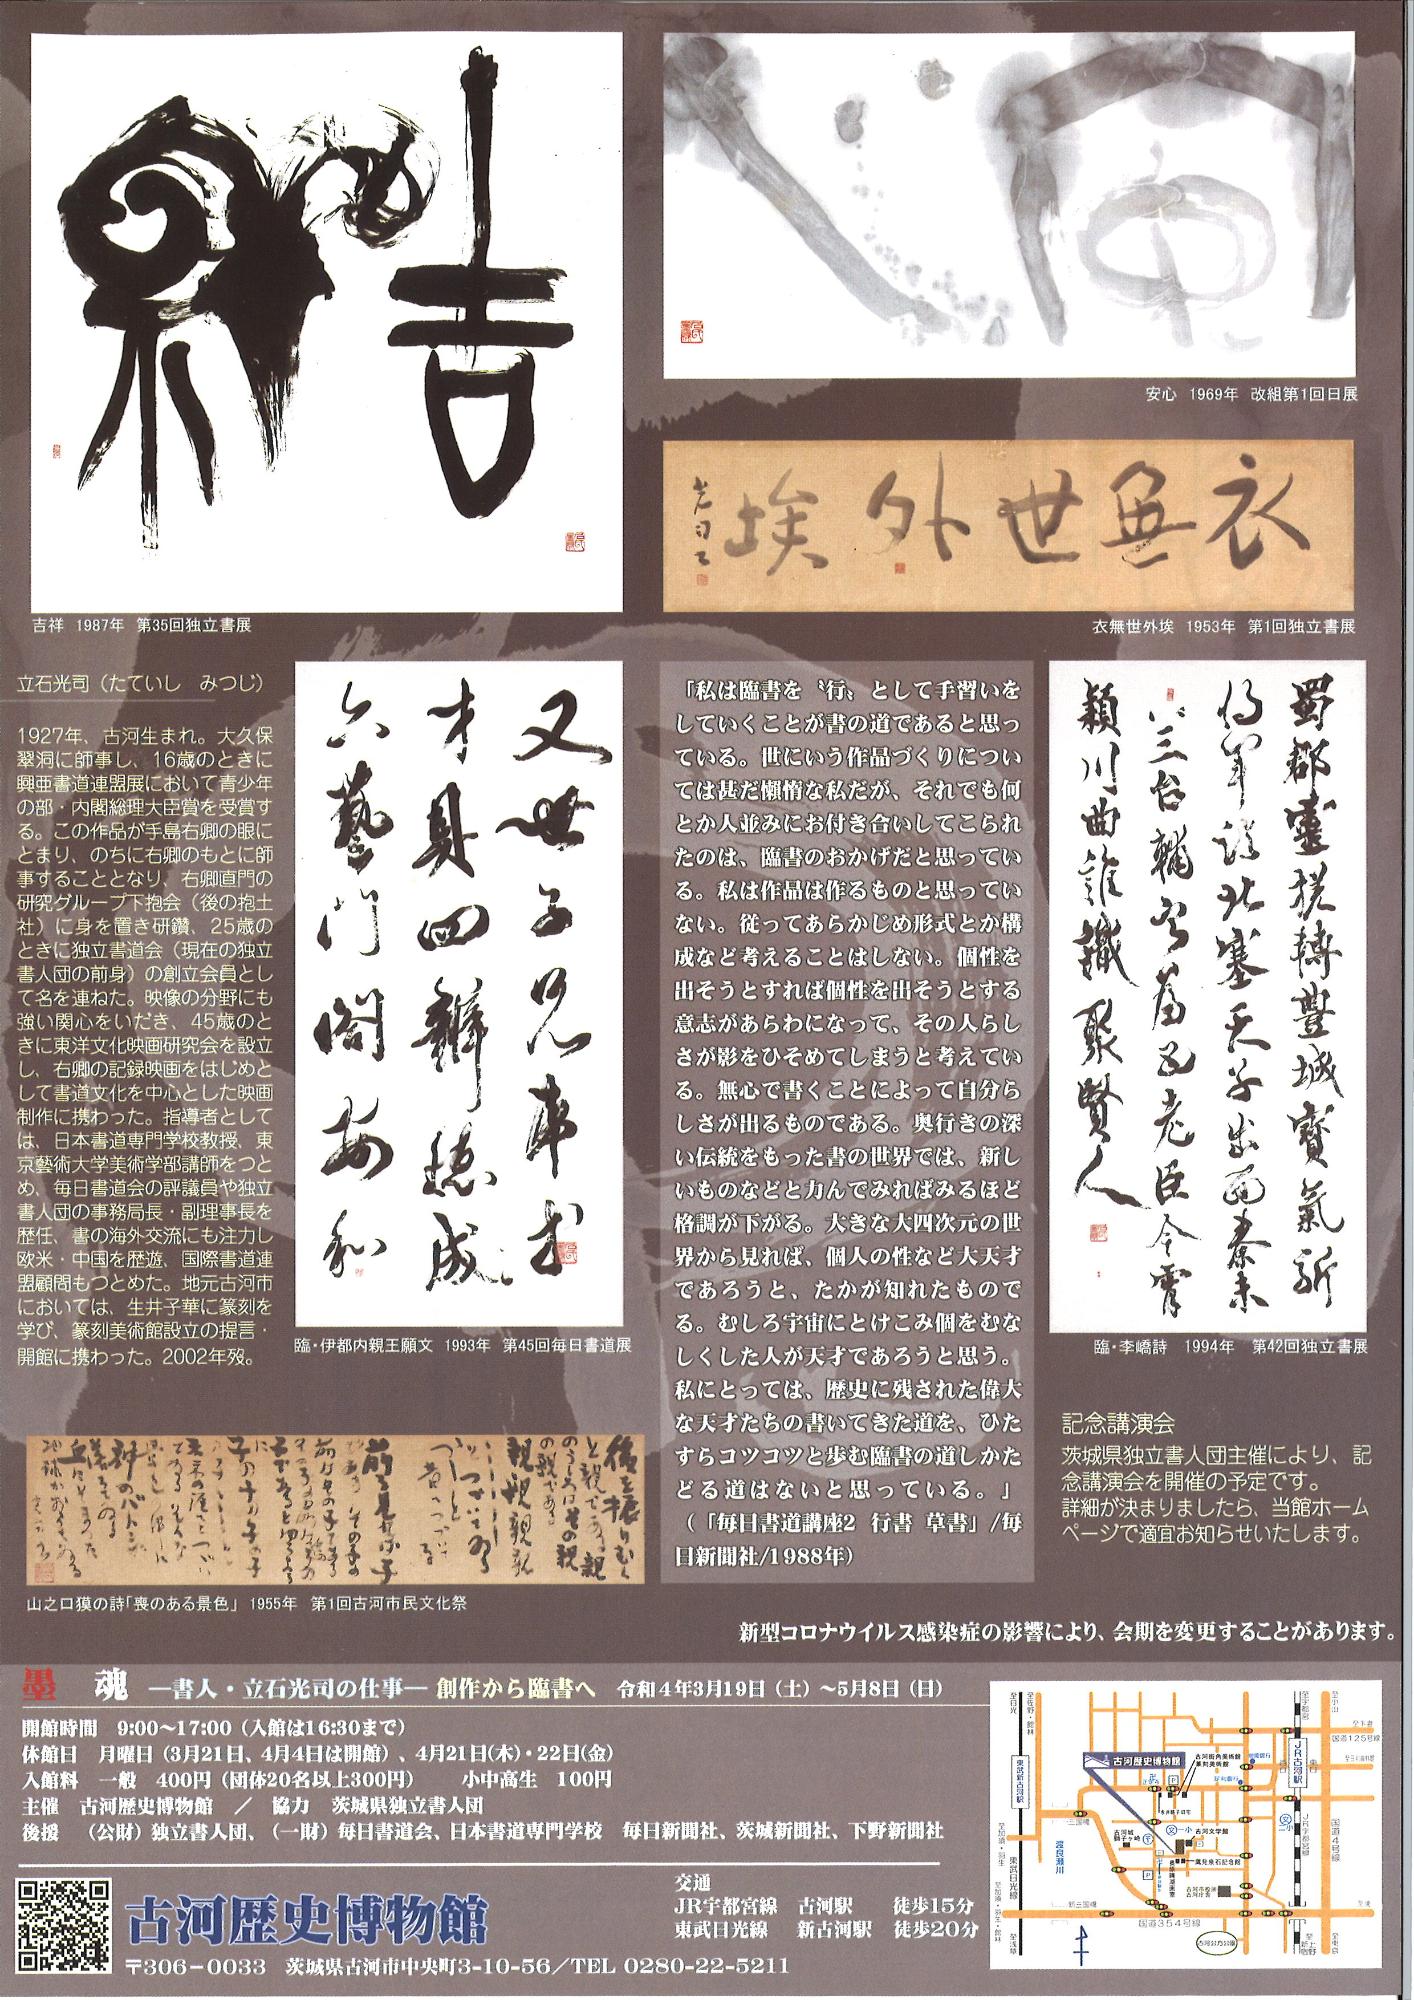 吉祥 1987年 第35回独立書展
安心 1969年 改組第1回日展
衣無世外埃
衣無世外埃 1953年 第1回独立書展
立石光司（たていし みつじ）
1927年、古河生まれ。大久保
翠洞に師事し、16歳のときに
興亜書道連盟展において青少年
の部・内閣総理大臣賞を受賞す
る。この作品が手島右卿の眼に
とまり、のちに右卿のもとに師
事することとなり、右卿直門の
研究グループ下抱会（後の抱土
社）に身を置き研鑽、25歳の
ときに独立書道会（現在の独立
書人団の前身）の創立会員とし
て名を連ねた。映像の分野にも
強い関心をいだき、45歳のと
きに東洋文化映画研究会を設立
し、右卿の記録映画をはじめと
して書道文化を中心とした映画
制作に携わった。指導者として
は、日本書道専門学校教授、東
京藝術大学美術学部講師をつと
め、毎日書道会の評議員や独立
書人団の事務局長・副理事長を
歴任、書の海外交流にも注力し
欧米・中国を歴遊、国際書道連
盟顧問もつとめた。地元古河市
においては、生井子華に篆刻を
学び、篆刻美術館設立の提言・
開館に携わった。2002年歿。
臨・伊都内親王願文 1993年 第45回毎日書道展
「私は臨書を〝行〟として手習いを
していくことが書の道であると思っ
ている。世にいう作品づくりについ
ては甚だ懶惰な私だが、それでも何
とか人並みにお付き合いしてこられ
たのは、臨書のおかげだと思ってい
る。私は作品は作るものと思ってい
ない。従ってあらかじめ形式とか構
成など考えることはしない。個性を
出そうとすれば個性を出そうとする
意志があらわになって、その人らし
さが影をひそめてしまうと考えてい
る。無心で書くことによって自分ら
しさが出るものである。奥行きの深
い伝統をもった書の世界では、新し
いものなどと力んでみればみるほど
格調が下がる。大きな大四次元の世
界から見れば、個人の性など大天才
であろうと、たかが知れたもので
る。むしろ宇宙にとけこみ個をむな
しくした人が天才であろうと思う。
私にとっては、歴史に残された偉大
な天才たちの書いてきた道を、ひた
すらコツコツと歩む臨書の道しかた
どる道はないと思っている。」
（「毎日書道講座2 行書 草書」/毎
日新聞社/1988年）
臨・李嶠詩 1994年 第42回独立書展
記念講演会
茨城県独立書人団主催により、記
念講演会を開催の予定です。
詳細が決まりましたら、当館ホーム
ページで適宜お知らせいたします。
山之口獏の詩「喪のある景色」 1955年 第1回古河市民文化祭
新型コロナウイルス感染症の影響により、会期を変更することがあります。
墨 魂 ―書人・立石光司の仕事― 創作から臨書へ 令和4年3月19日（土）～5月8日（日）
開館時間 9:00～17:00（入館は16:30まで）
休館日 月曜日（3月21日、4月4日は開館）、4月21日(木)・22日(金)
入館料 一般 400円（団体20名以上300円） 小中高生 100円
主催 古河歴史博物館 ／ 協力 茨城県独立書人団
後援 （公財）独立書人団、（一財）毎日書道会、日本書道専門学校 毎日新聞社、茨城新聞社、下野新聞社
古河歴史博物館
〒306-0033 茨城県古河市中央町3-10-56／TEL 0280-22-5211
交通
JR宇都宮線 古河駅 徒歩15分
東武日光線 新古河駅 徒歩20分
古河歴史博物館
古河街角美術館
篆刻美術館
古河文学館
鷹見泉石記念館
JR古河駅
東武新古河駅
渡良瀬川
東武日光線
JR宇都宮線
国道4号線
国道125号線
国道354号線
三国橋
新三国橋
古河公方公園